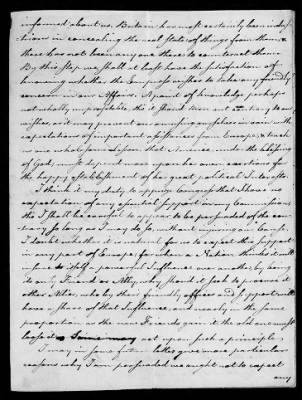 informed about us. Britain has most certainly been indus-
trious in concealing the real State of things from them, &
there has not been any one there to counteract them.
By this step we shall at least have the satisfaction of
knowing whether the Empress wishes to take any friendly
concern in our Affairs. A piece of knowledge perhaps
not wholly unprofitable, tho' it shou'd turn out contrary to our
wishes, as it may prevent our amusing ourselves in vain with
expectations of important assistances from Europe, & teach
us one whole some Lesson that America, under the blessing
of God, must depend more upon her own exertions for
the happy establishment of her great political Interests.
I think it my duty to apprise Congress that I have no
expectation of any essential support in my Commission
tho' I shall be careful to appear to be persuaded of the con-
trary so long as I may do so, without injuring our Cause.
I doubt whether it is meant for us to expect this support
in any part of Europe; for when a Nation thinks it will
insure to itself a powerful Influence over another by being
its only Friend or Ally, why should it seek to procure it
other Allies, who by their friendly offices and support will
have a share of that Influence, and nearly in the same
proportion as the new Friends gain it the old one must
loose it. Some may act upon such a principle.
I may in some future letter give more particular
reasons why I am persuaded we ought not to expect
any